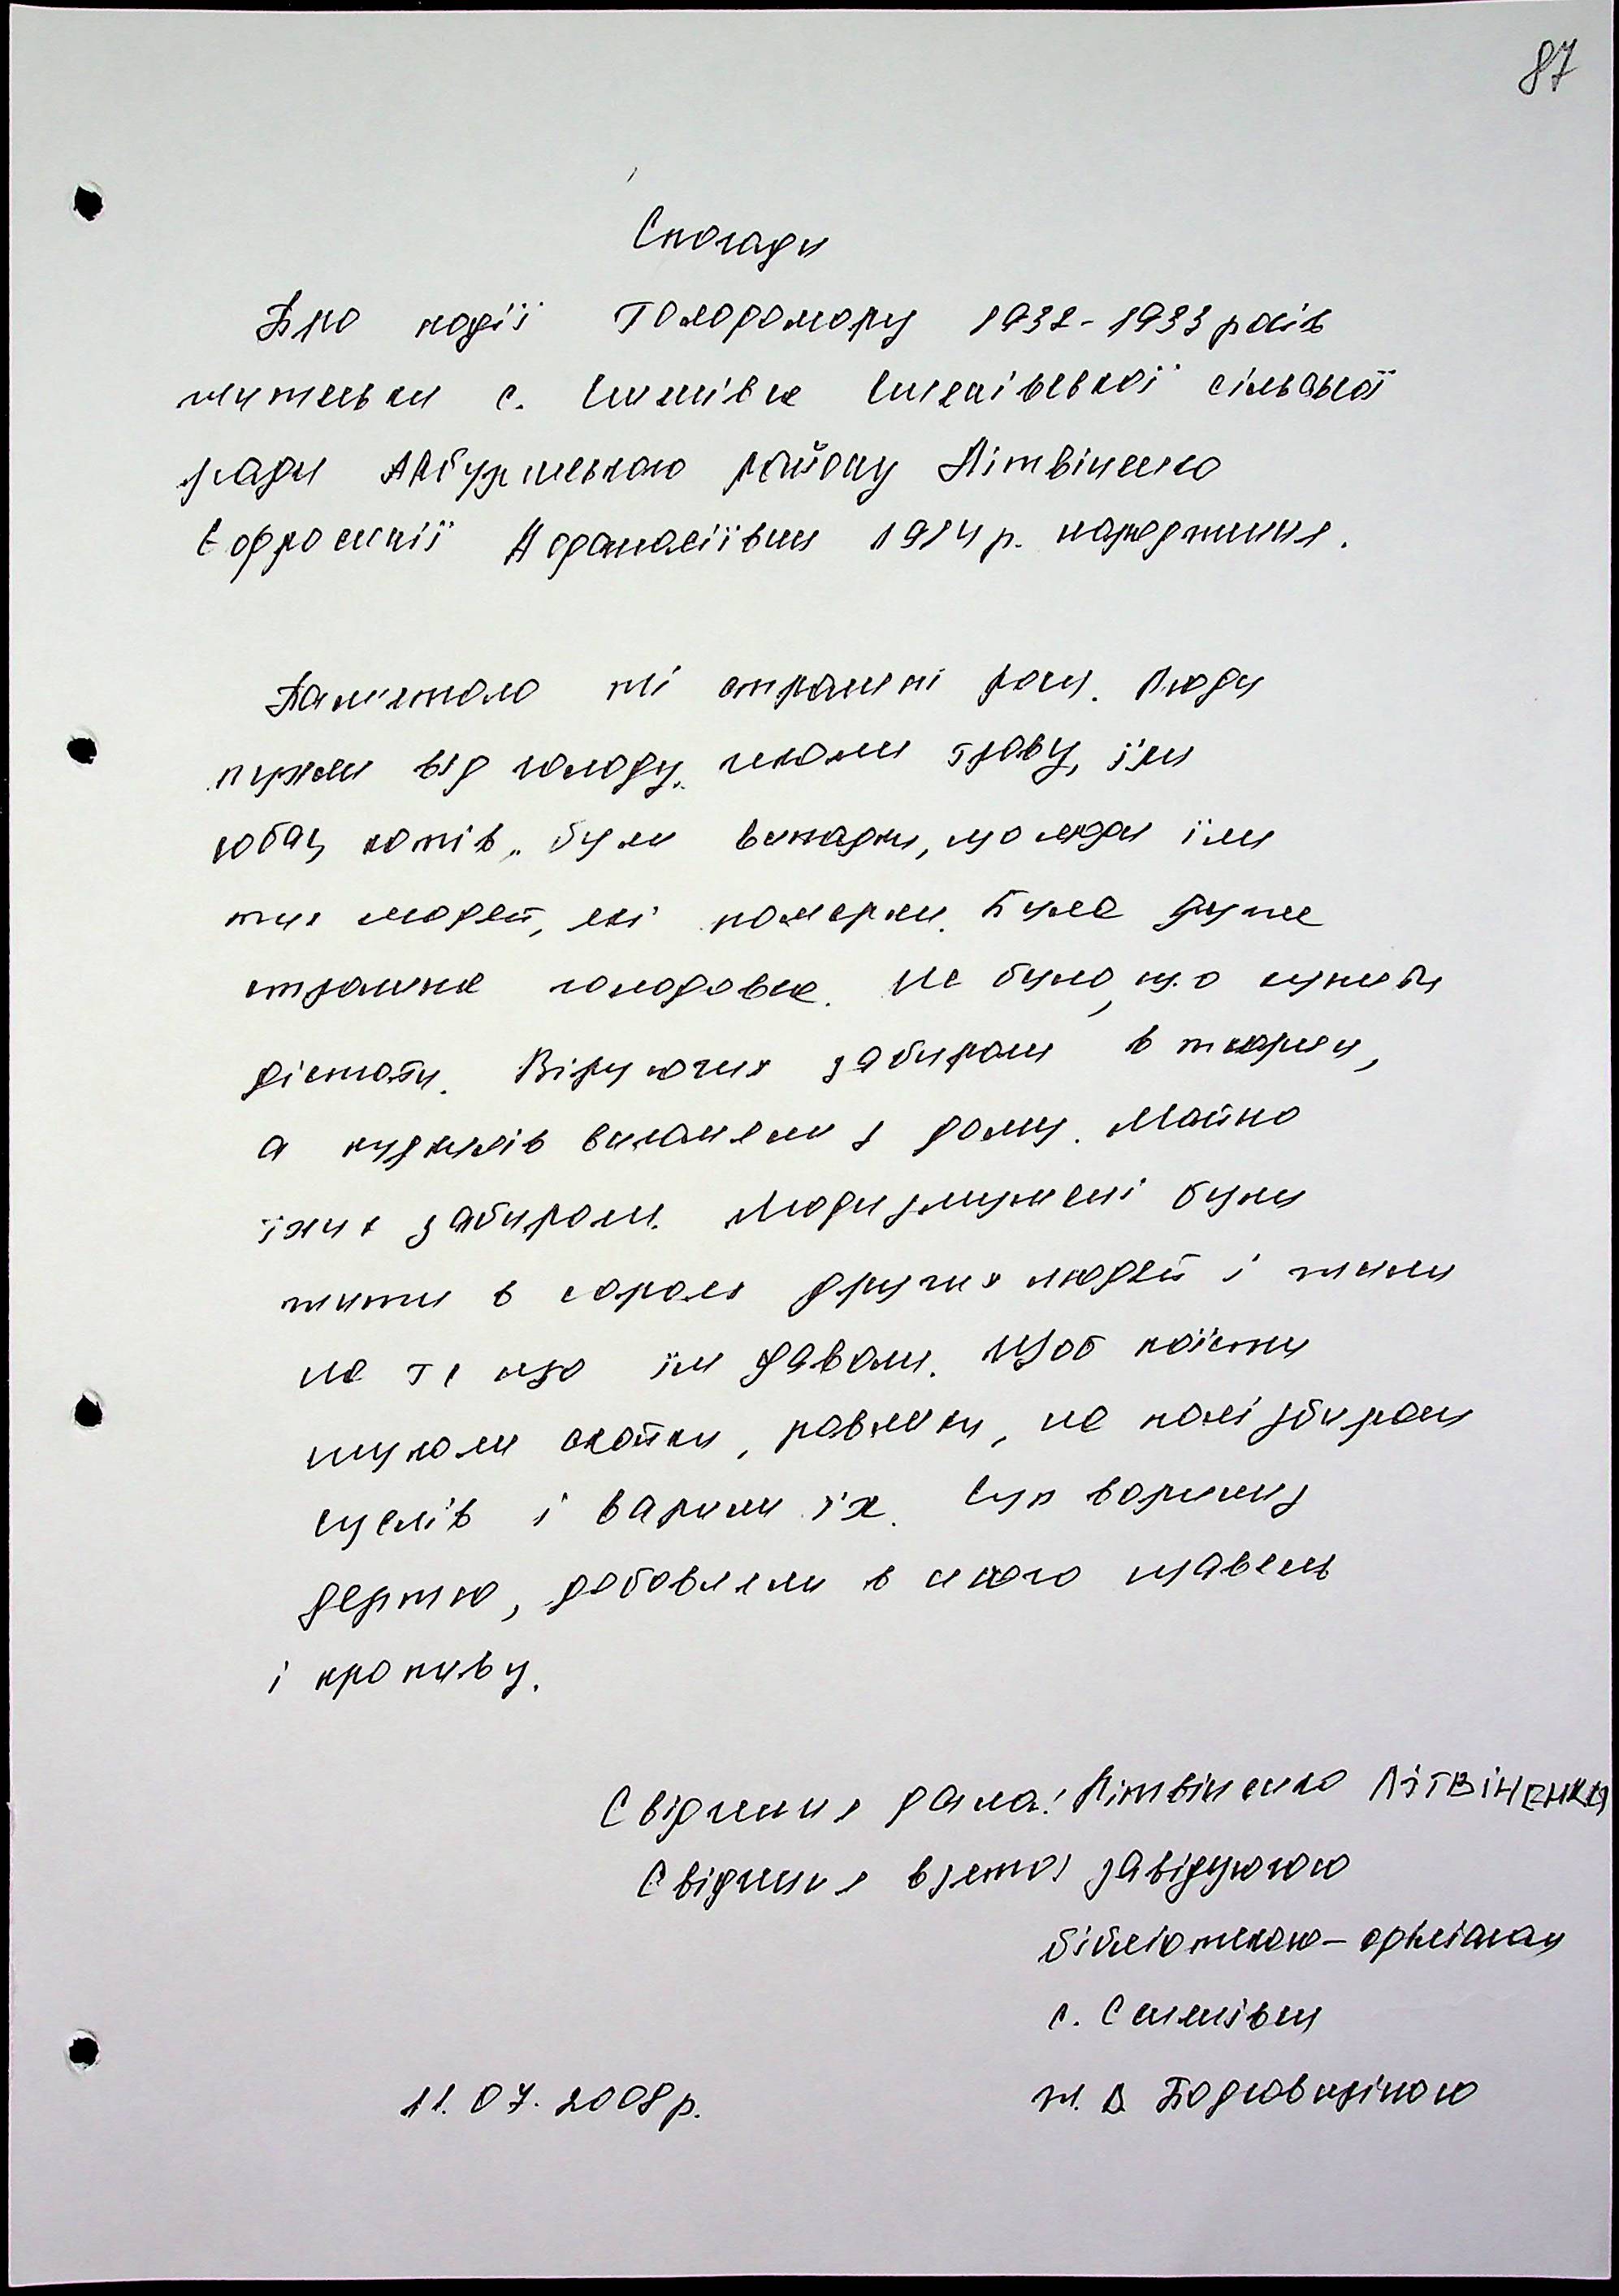 87
Спогади
Про події Голодомору 1932-1933 років
жительки с. Семенівка Семенівської сільської
ради Арбузинського району Літвіненко
Єфросинії Афанасіївни 1914 р. народження.
Пам'ятаю ті страшні роки. Люди
пухли від голоду, шукали траву, їли
собак, котів, були випадки, що люди їли
тих людей, які померли. Була дуже
страшна голодовка. Не було, що купити
дістати. Віруючих забирали в тюрми,
а куркулів виганяли з дому. Майно
їхнє забирали. Люди змушені були
жити в сараях других людей і жили
на те що їм давали. Щоб поїсти
шукали скойки, равлики, на полі збирали
суслів і варили їх. Суп варили з
дертю, добавляли в нього щавель
і кропиву.
Свідчення дала: Літвіненко ЛІТВІНЕНКО
Свідчення взято завідуючою
бібліотекою-філіалу
с. Семенівки
11.07.2008 р.